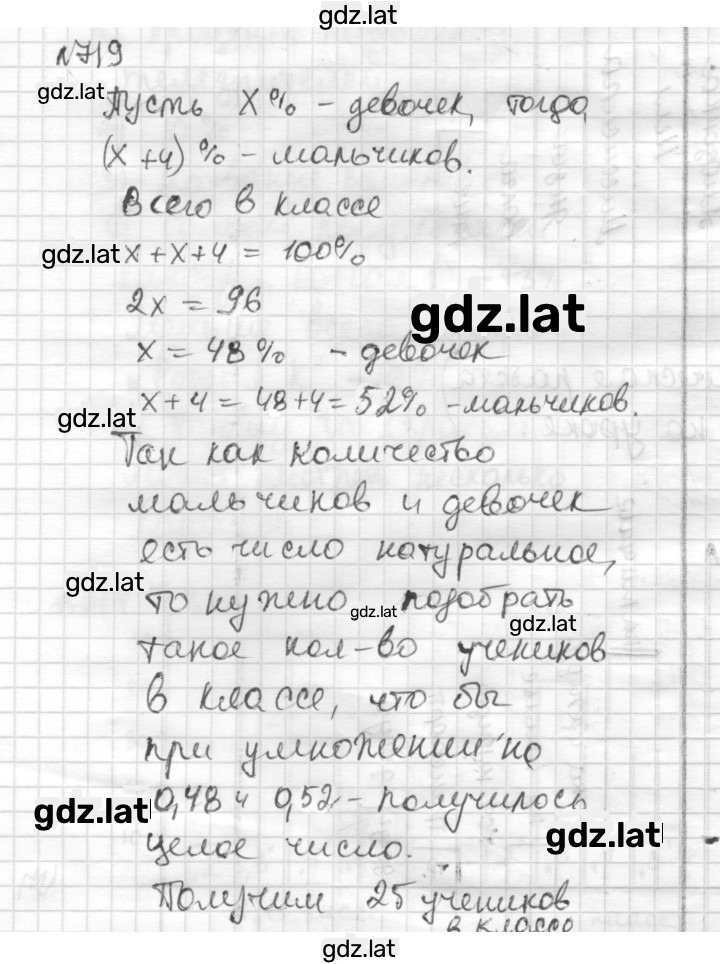 gdz.lat
№719
gdz.lat
Пусть x% - девочек, тогда
(x+4)% - мальчиков.
Всего в классе
gdz.lat x+x+4 = 100%
2x = 96
gdz.lat
x = 48% - девочек
x+4 = 48+4 = 52% - мальчиков.
gdz.lat
Так как количество
мальчиков и девочек
есть число натуральное,
gdz.lat
то нужно gdz.lat подобрать
gdz.lat
такое кол-во учеников
в классе, что бы
при умножении на
0,48 и 0,52 - получилось
gdz.lat
gdz.lat
целое число.
Получим 25 учеников
в классе
gdz.lat